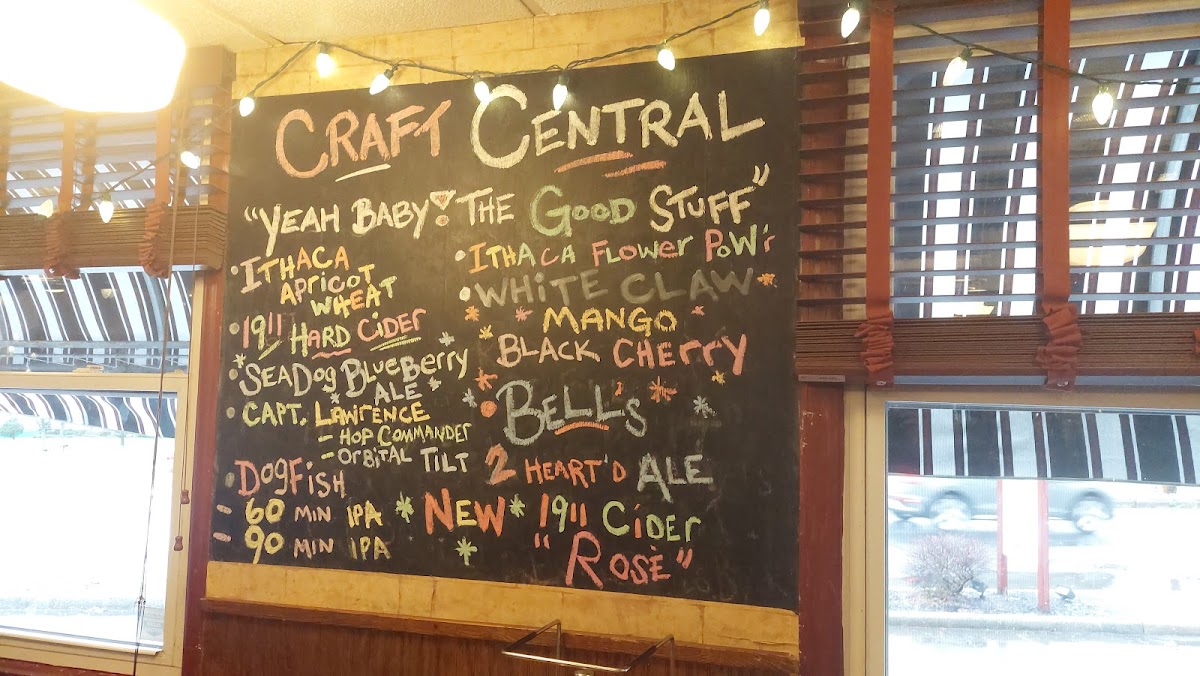 CRAFT CENTRAL
"YEAH BABY! THE GOOD STUFF"
• ITHACA
APRICOT
WHEAT
• 1911 HARD CIDER
• SEADOG BLUEBERRY
ALE
• CAPT. LAWRENCE
- HOP COMMANDER
- ORBITAL TILT
• DOGFISH
- 60 MIN IPA
- 90 MIN IPA
• ITHACA FLOWER POW'r
• WHITE CLAW
MANGO
BLACK CHERRY
• BELL'S
2 HEART'D ALE
* NEW * 1911 CIDER
"ROSÈ"